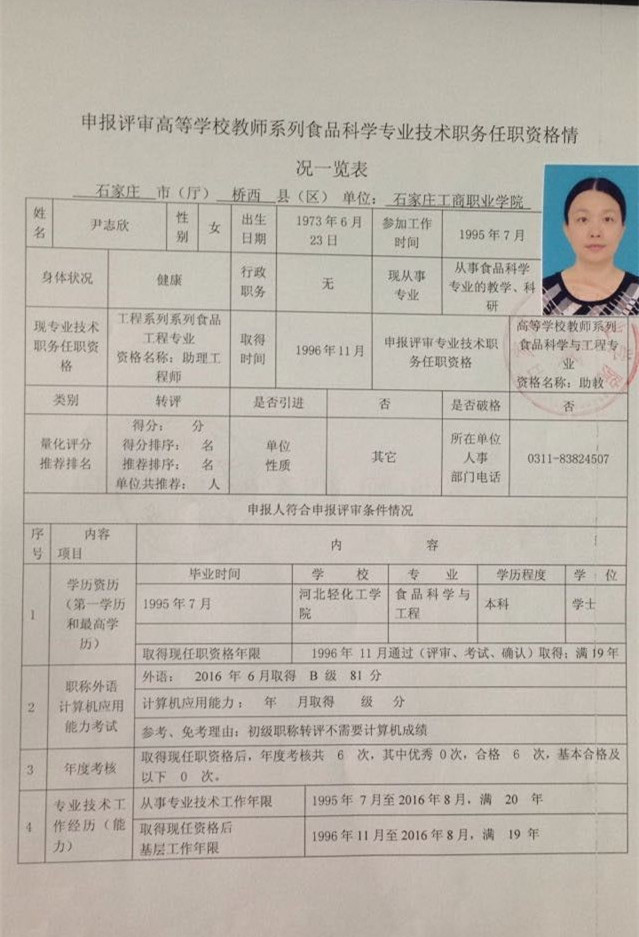 申报评审高等学校教师系列食品科学专业技术职务任职资格情
况一览表
石家庄 市（厅） 桥西 县（区） 单位：石家庄工商职业学院
姓名 尹志欣 性别 女 出生日期 1973 年 6 月 23 日 参加工作时间 1995 年 7 月
身体状况 健康 行政职务 无 现从事专业 从事食品科学专业的教学、科研
现专业技术职务任职资格 工程系列系列食品工程专业 资格名称：助理工程师 取得时间 1996 年 11 月 申报评审专业技术职务任职资格 高等学校教师系列食品科学与工程专业 资格名称：助教
类别 转评 是否引进 否 是否破格 否
量化评分推荐排名 得分： 分 得分排序： 名 推荐排序： 名 单位共推荐： 人 单位性质 其它 所在单位人事部门电话 0311-83824507
申报人符合申报评审条件情况
序号 内容 项目 内 容
1 学历资历（第一学历和最高学历） 毕业时间 学 校 专 业 学历程度 学 位
1995 年 7 月 河北轻化工学院 食品科学与工程 本科 学士
取得现任职资格年限 1996 年 11 月通过（评审、考试、确认）取得；满 19 年
2 职称外语计算机应用能力考试 外语： 2016 年 6 月取得 B 级 81 分
计算机应用能力： 年 月取得 级 分
参考、免考理由：初级职称转评不需要计算机成绩
3 年度考核 取得现任职资格后，年度考核共 6 次，其中优秀 0 次，合格 6 次，基本合格及
以下 0 次。
4 专业技术工作经历（能力） 从事专业技术工作年限 1995 年 7 月至 2016 年 8 月，满 20 年
取得现任资格后基层工作年限 1996 年 11 月至 2016 年 8 月，满 19 年